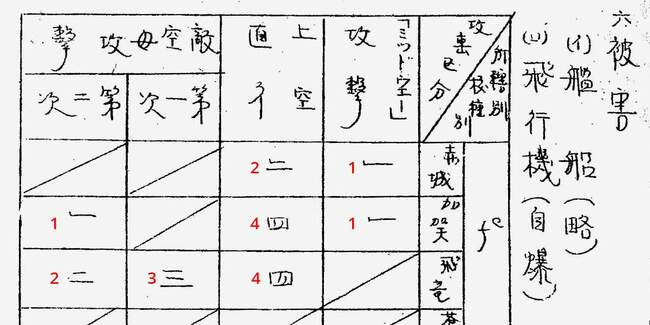 六被害
(イ)艦船(略)
(ロ)飛行機(自爆)
所轄別
機種別
攻撃区分
「ミッドウェー」攻撃
上空直衛
敵空母攻撃
第一次
第二次
fc
赤城
1 一
2 二
加賀
1 一
4 四
1 一
飛竜
4 四
3 三
2 二